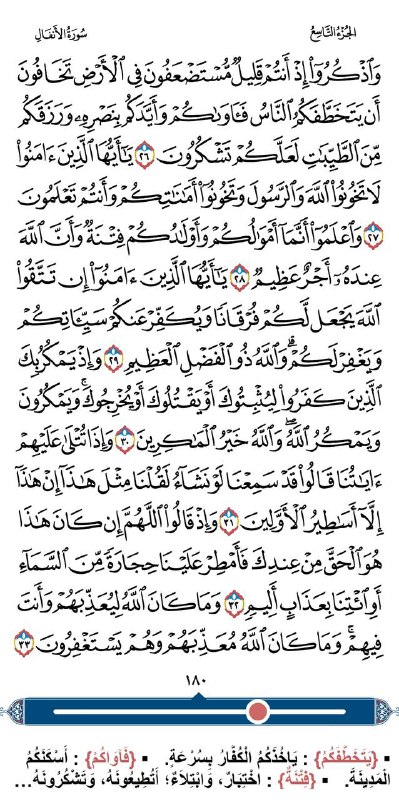 الجزء التاسع سورة الأنفال
وَٱذْكُرُوٓا۟ إِذْ أَنتُمْ قَلِيلٌ مُّسْتَضْعَفُونَ فِى ٱلْأَرْضِ تَخَافُونَ
أَن يَتَخَطَّفَكُمُ ٱلنَّاسُ فَـَٔاوَىٰكُمْ وَأَيَّدَكُم بِنَصْرِهِۦ وَرَزَقَكُم
مِّنَ ٱلطَّيِّبَـٰتِ لَعَلَّكُمْ تَشْكُرُونَ ٢٦ يَـٰٓأَيُّهَا ٱلَّذِينَ ءَامَنُوا۟
لَا تَخُونُوا۟ ٱللَّهَ وَٱلرَّسُولَ وَتَخُونُوٓا۟ أَمَـٰنَـٰتِكُمْ وَأَنتُمْ تَعْلَمُونَ
٢٧ وَٱعْلَمُوٓا۟ أَنَّمَآ أَمْوَٰلُكُمْ وَأَوْلَـٰدُكُمْ فِتْنَةٌ وَأَنَّ ٱللَّهَ
عِندَهُۥٓ أَجْرٌ عَظِيمٌ ٢٨ يَـٰٓأَيُّهَا ٱلَّذِينَ ءَامَنُوٓا۟ إِن تَتَّقُوا۟
ٱللَّهَ يَجْعَل لَّكُمْ فُرْقَانًا وَيُكَفِّرْ عَنكُمْ سَيِّـَٔاتِكُمْ
وَيَغْفِرْ لَكُمْ ۗ وَٱللَّهُ ذُو ٱلْفَضْلِ ٱلْعَظِيمِ ٢٩ وَإِذْ يَمْكُرُ بِكَ
ٱلَّذِينَ كَفَرُوا۟ لِيُثْبِتُوكَ أَوْ يَقْتُلُوكَ أَوْ يُخْرِجُوكَ ۚ وَيَمْكُرُونَ
وَيَمْكُرُ ٱللَّهُ ۖ وَٱللَّهُ خَيْرُ ٱلْمَـٰكِرِينَ ٣٠ وَإِذَا تُتْلَىٰ عَلَيْهِمْ
ءَايَـٰتُنَا قَالُوا۟ قَدْ سَمِعْنَا لَوْ نَشَآءُ لَقُلْنَا مِثْلَ هَـٰذَآ ۙ إِنْ هَـٰذَآ
إِلَّآ أَسَـٰطِيرُ ٱلْأَوَّلِينَ ٣١ وَإِذْ قَالُوا۟ ٱللَّهُمَّ إِن كَانَ هَـٰذَا
هُوَ ٱلْحَقَّ مِنْ عِندِكَ فَأَمْطِرْ عَلَيْنَا حِجَارَةً مِّنَ ٱلسَّمَآءِ
أَوِ ٱئْتِنَا بِعَذَابٍ أَلِيمٍ ٣٢ وَمَا كَانَ ٱللَّهُ لِيُعَذِّبَهُمْ وَأَنتَ
فِيهِمْ ۚ وَمَا كَانَ ٱللَّهُ مُعَذِّبَهُمْ وَهُمْ يَسْتَغْفِرُونَ ٣٣
١٨٠
▪ {يَتَخَطَّفَكُمُ} : يَأْخُذَكُمُ الْكُفَّارُ بِسُرْعَةٍ. ▪ {فَآوَاكُمْ} : أَسْكَنَكُمُ
الْمَدِينَةَ. ▪ {فِتْنَةٌ} : اخْتِبَارٌ، وَابْتِلَاءٌ؛ أَتُطِيعُونَهُ، وَتَشْكُرُونَهُ...